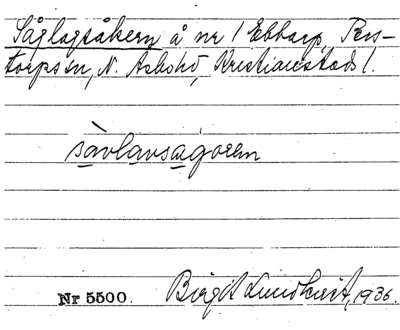 Såglagsåkern å nr 1 Ebbarp, Pers-
torps sn, N. Åsbo hd, Kristianstads l.
såvlavsagoren
Nr 5500. Birgit Lundkvist, 1936.